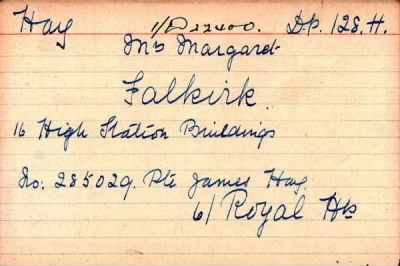 Hay 1/D 22400. D.P. 128.H.
Mrs Margaret
Falkirk.
16 High Station Buildings
No. 285029. Pte James Hay.
6/ Royal Hrs